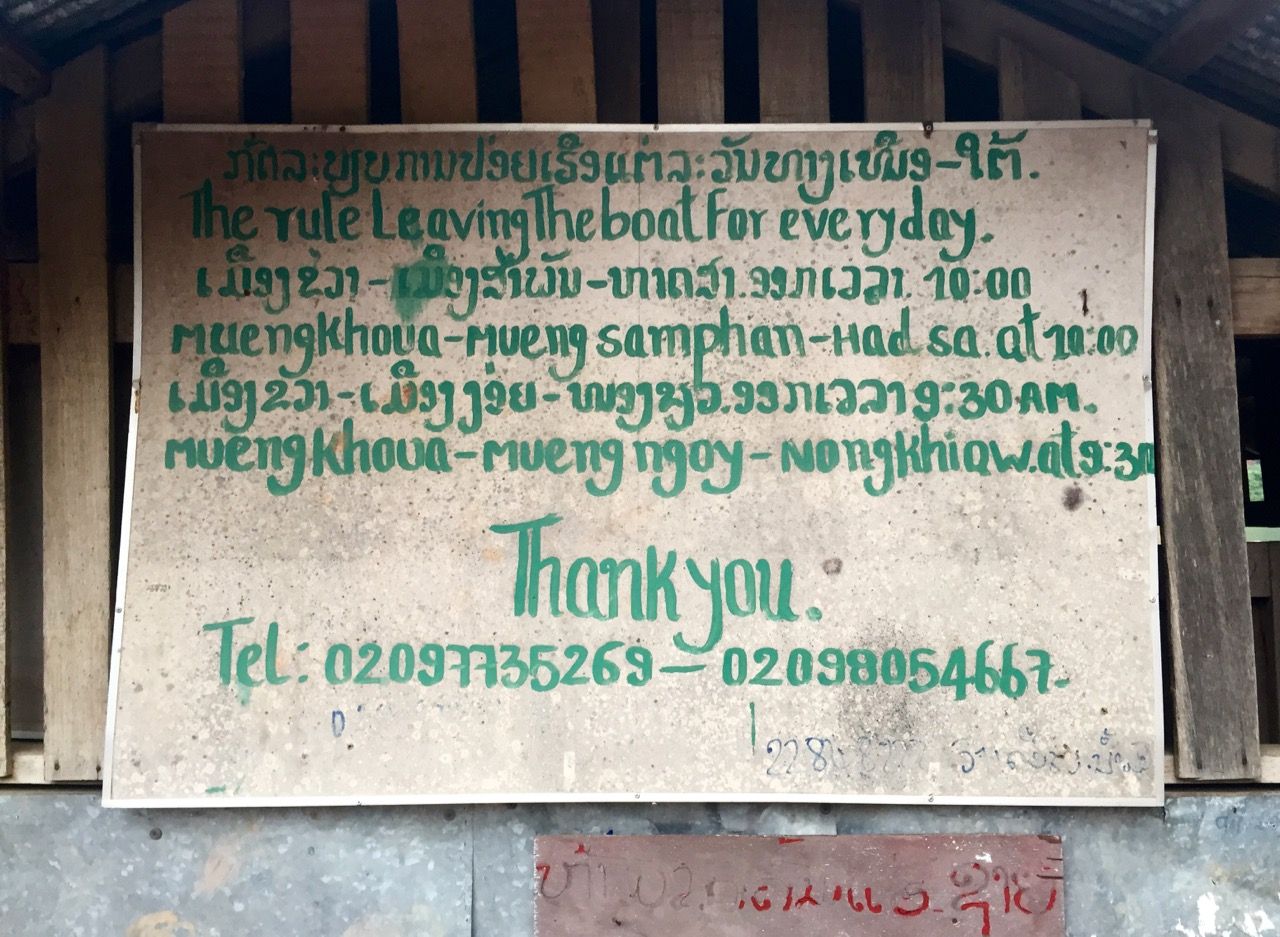 ກົດລະບຽບການປ່ອຍເຮືອແຕ່ລະວັນທາງເໜືອ-ໃຕ້.
The rule Leaving The boat For everyday.
ເມືອງຂວ່າ-ເມືອງສຳພັນ-ຫາດສາ.ອອກເວລາ 10:00
MuengKhoua-Mueng samphan-Had sa.at 10:00
ເມືອງຂວາ-ເມືອງງ່ອຍ-ໜອງຂຽວ.ອອກເວລາ 9:30 AM.
MuengKhoua-Mueng ngoy-NongKhiaw.at 9:30
Thank you.
Tel: 02097735269-02098054667-